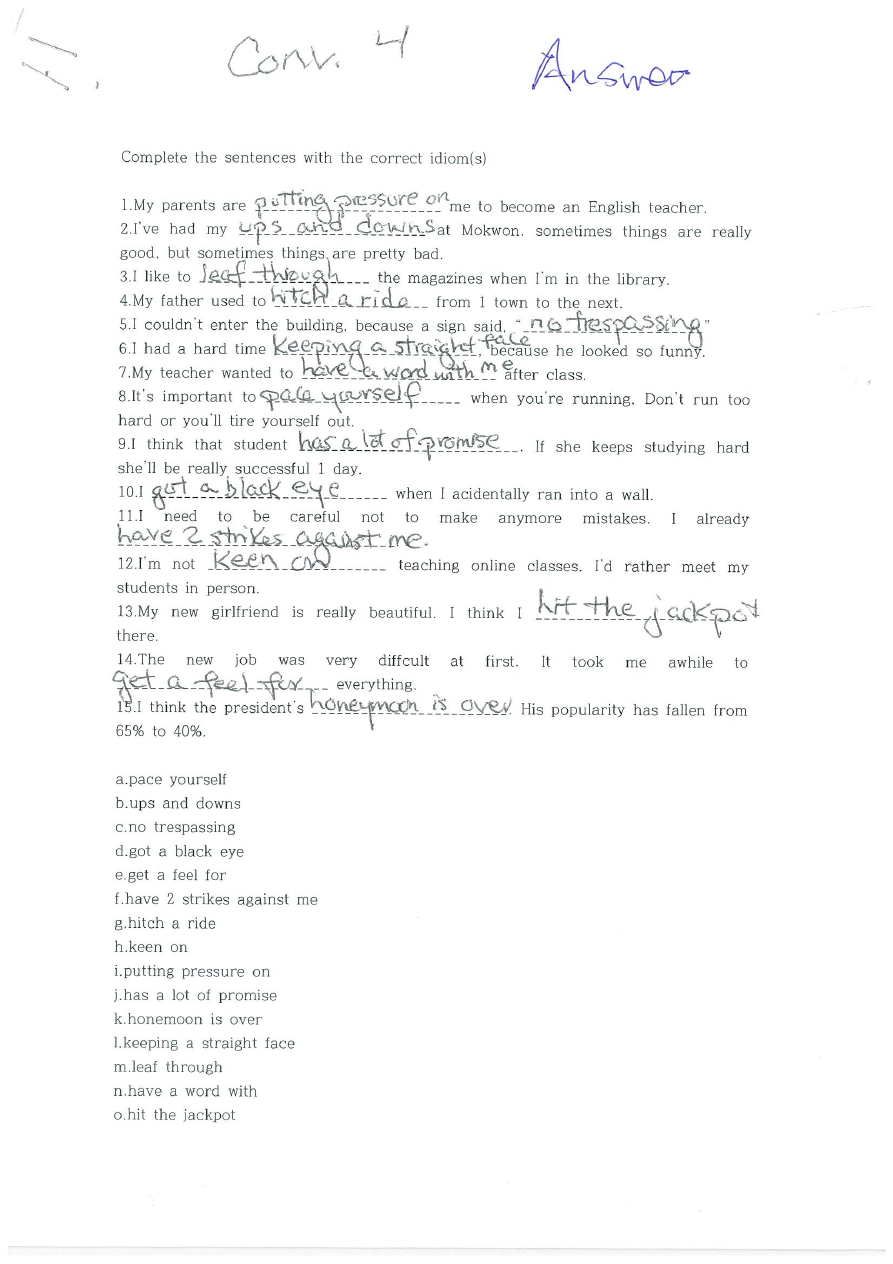 Conv. 4
Answer
Complete the sentences with the correct idiom(s)
1.My parents are putting pressure on me to become an English teacher.
2.I've had my ups and downs at Mokwon. sometimes things are really
good, but sometimes things are pretty bad.
3.I like to leaf through the magazines when I'm in the library.
4.My father used to hitch a ride from 1 town to the next.
5.I couldn't enter the building, because a sign said, "no trespassing"
6.I had a hard time keeping a straight face, because he looked so funny.
7.My teacher wanted to have a word with me after class.
8.It's important to pace yourself when you're running. Don't run too
hard or you'll tire yourself out.
9.I think that student has a lot of promise. If she keeps studying hard
she'll be really successful 1 day.
10.I got a black eye when I acidentally ran into a wall.
11.I need to be careful not to make anymore mistakes. I already
have 2 strikes against me.
12.I'm not keen on teaching online classes. I'd rather meet my
students in person.
13.My new girlfriend is really beautiful. I think I hit the jackpot
there.
14.The new job was very diffcult at first. It took me awhile to
get a feel for everything.
15.I think the president's honeymoon is over. His popularity has fallen from
65% to 40%.
a.pace yourself
b.ups and downs
c.no trespassing
d.got a black eye
e.get a feel for
f.have 2 strikes against me
g.hitch a ride
h.keen on
i.putting pressure on
j.has a lot of promise
k.honemoon is over
l.keeping a straight face
m.leaf through
n.have a word with
o.hit the jackpot